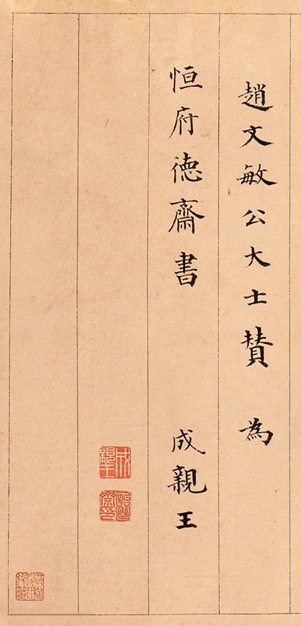 趙文敏公大士賛為
恒府德齋書 成親王